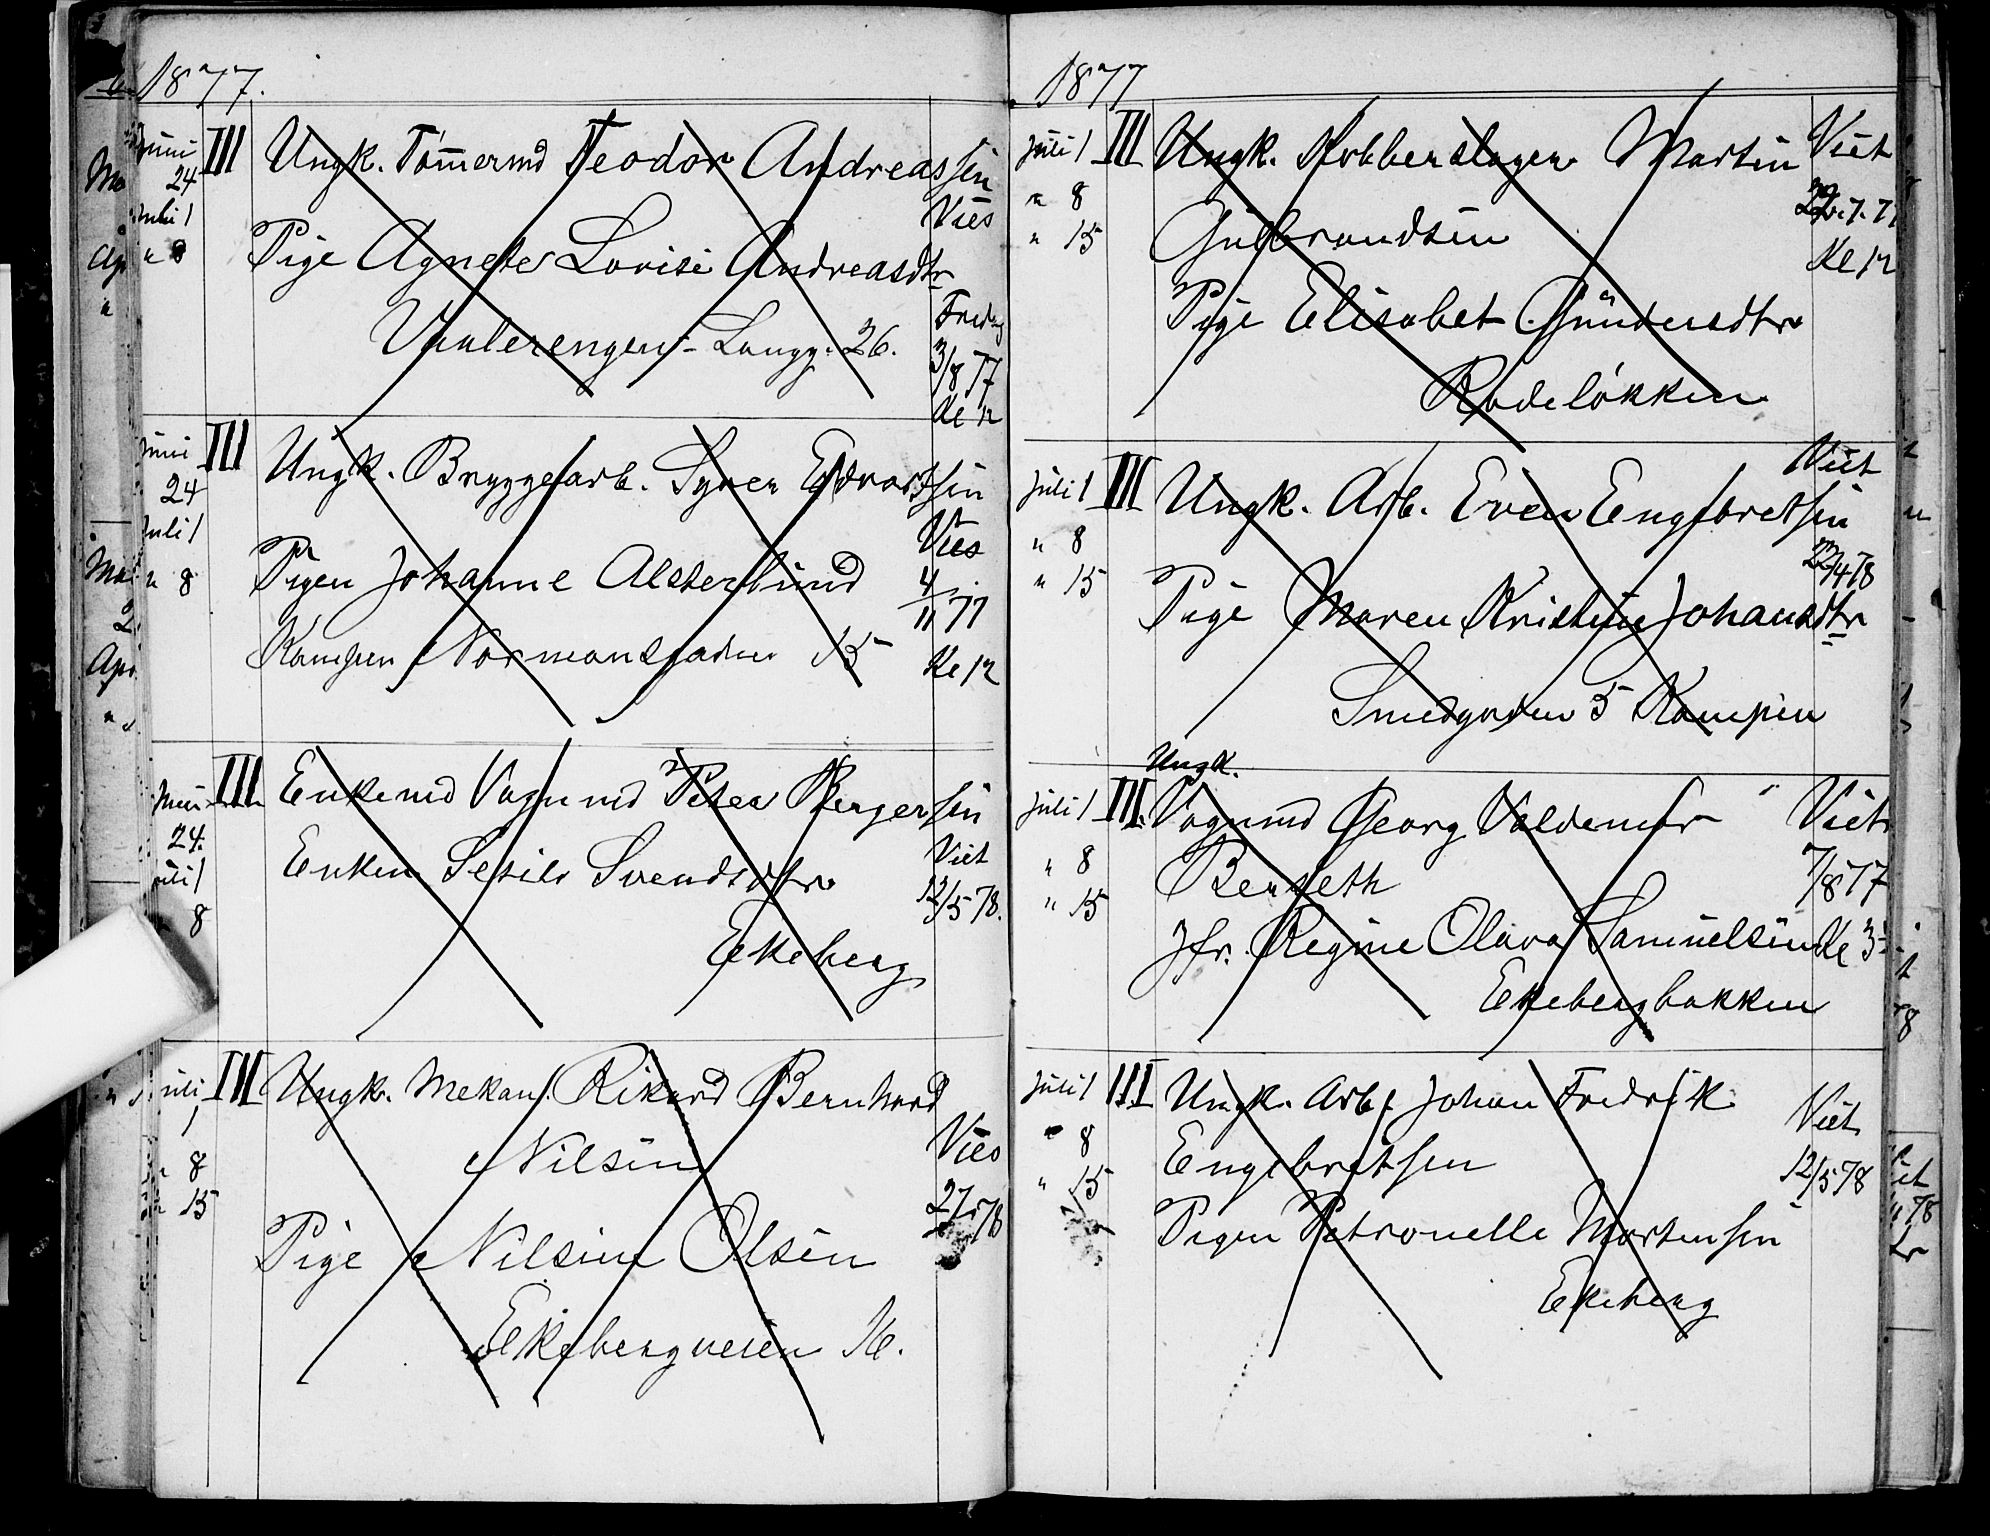 1877.
Juni III Ungk. Tömermd Teodor Andreassen
24
Juli 1 Vies
" 8 Pige Agnete Lovise Andreasdtr
Fredag
Vaalerengen - Langg. 26.
3/8 77
Kl 12
Juni III Ungk. Bryggearb. Syver Edvartsen
24
Juli 1 Vies
" 8 Pigen Johanne Alsterlund
4/11 77
Kampen Normansgaden 15
Kl 12
Juni III Enkemd Vognmd Peter Bergersen
24.
Juli 1 Enken Sesile Svendsdtr Viet
8 12/5 78.
Ekeberg
Juli III Ungk. Mekan. Rikard Bernhard
1
" 8 Nilsen Vies
" 15 27 78
Pige Nilsine Olsen
Ekebergveien 16.
1877
Juli 1 III Ungk. Kobberslager Martin Viet
" 8 22.7.77
" 15 Gulbrandsen Kl 12
Pige Elisabet Gundersdtr
Rodeløkken
Viet
Juli 1 III Ungk. Arb. Even Engebretsen
" 8 22/4 78
" 15 Pige Maren Kristine Johansdtr
Smedgaden 5 Kampen
Ungk.
Juli 1 III. Vognmd Georg Valdemar Viet
" 8 Berseth 7/8 77
" 15
Jfr. Regine Olava Samuelsen Kl 3
Ekebergbakken
Juli 1 III Ungk. Arb. Johan Fredrik Viet
" 8 Engebretsen 12/5 78
" 15
Pigen Petronelle Mortensen
Ekeberg